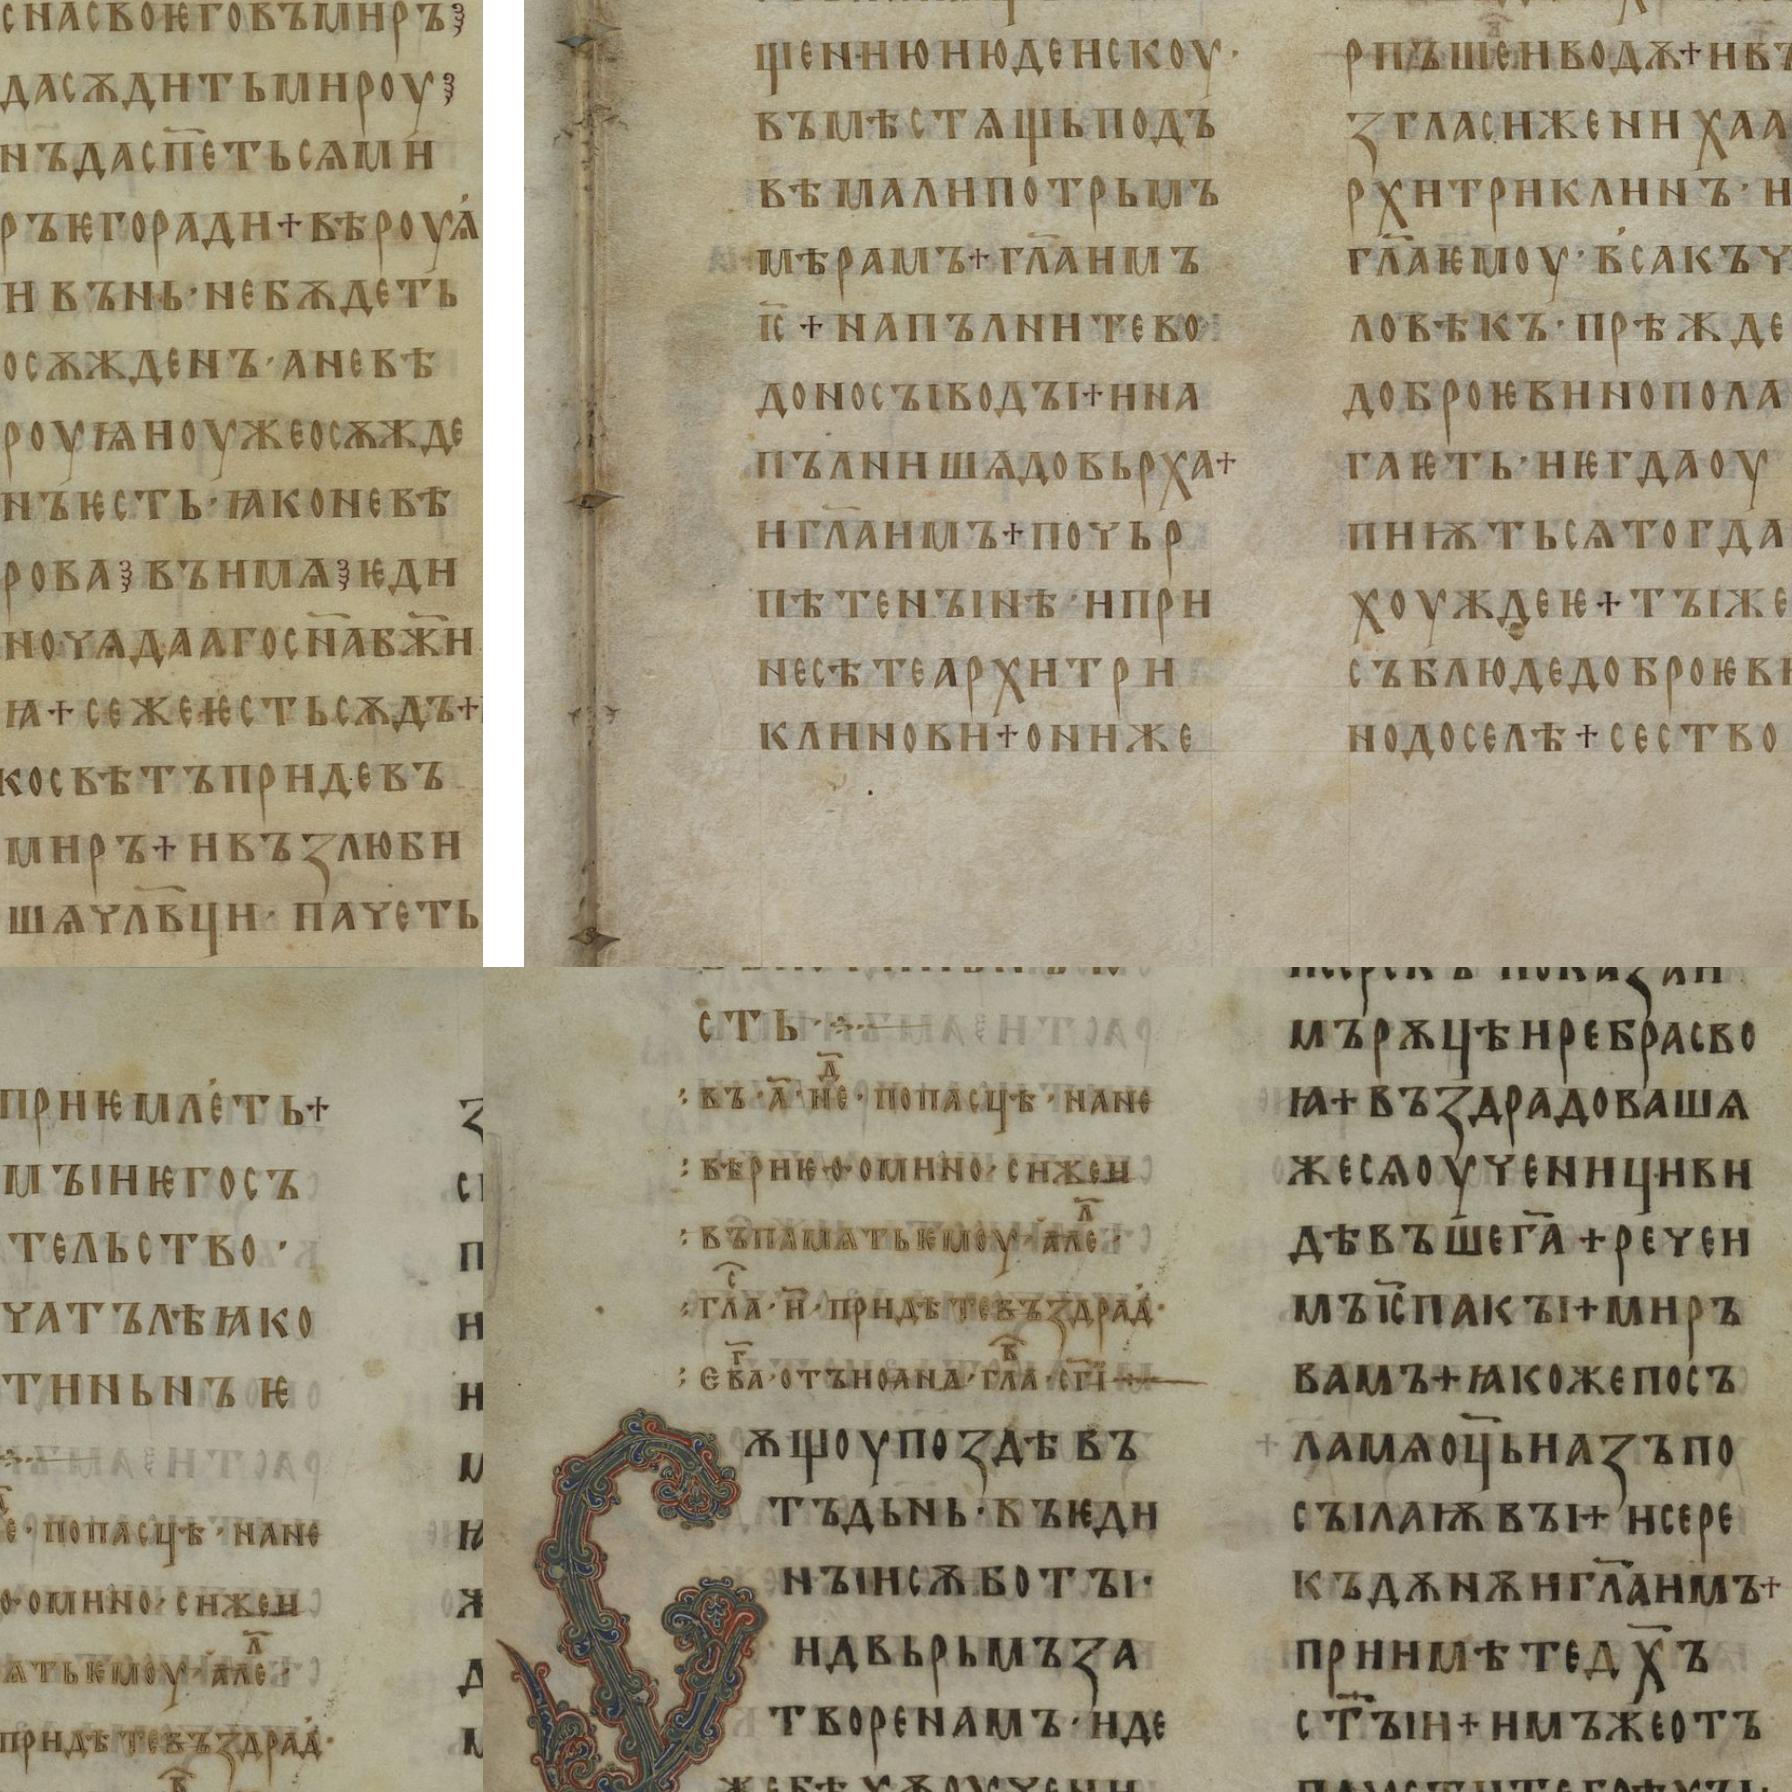 снасвоѥговъмиръ꙾
дасѫдитьмироу꙾
нъдасп҃етьсѧми
ръѥгоради+вѣроуѧ
ивънь·небѫдеть
осѫжденъ·аневѣ
роуꙗноужеосѫжде
нъѥсть·ꙗконевѣ
рова꙾въимѧ꙾ѥди
ночѧдаагосн҃абж҃и
ꙗ+сежеѥстьсѫдъ+
косвѣтъпридевъ
миръ+ивъꙁлюби
шѧчл҃вци·пачеть
щениюиюденскоу·
въмѣстѧщьподъ
вѣмалипотрьмъ
мѣрамъ+гл҃аимъ
іс҃+напълнитево
доносꙑводꙑ+ина
пълнишѧдовьрха+
игл҃аимъ+почьр
пѣтенꙑнѣ·ипри
несѣтеархитри
клинови+ониже
рпъшеиводѫ+ивъ
ꙁгласижених҃аа
рхитриклинъ·и
гл҃аѥмоу·вьсакъч
ловѣкъ·прѣжде
доброѥвинопола
гаѥть·иѥгдаоу
пиѭтьсѧтогда
хоуждеѥ+тꙑже
съблюдедоброѥви
нодоселѣ+сество
приѥмлеть+
мꙑиѥгосъ
тельство·
чатълѣꙗко
тиньнъѥ
е·попасцѣ·нане
о·омино·сижеи
ѧтьѥмоу·але·
придѣтевъꙁдрад·
сть·
:въ·а҃·не·попасцѣ·нане
:вѣрние·о·омино·сижеи
:въпамѧтьѥмоу·але·
:гла·и҃·придѣтевъꙁдрад·
:Ева·отъиоана·гла·сг҃і
ѫщоупоꙁдѣвъ
тъдьнь·въѥди
нꙑисѫботꙑ·
идвьрьмъꙁа
творенамъ·иде
жебѣхѫоучени
мърѫцѣиребрасво
ꙗ+въꙁдрадовашѧ
жесѧоученициви
дѣвъшег҃а+речеи
мъіс҃пакꙑ+миръ
вамъ+ꙗкожепосъ
ламѧоц҃ьиаꙁъпо
сꙑлаѭвꙑ+исере
къдѫнѫигл҃аимъ+
приимѣтед҃хъ
ст҃ꙑи+имъжеотъ